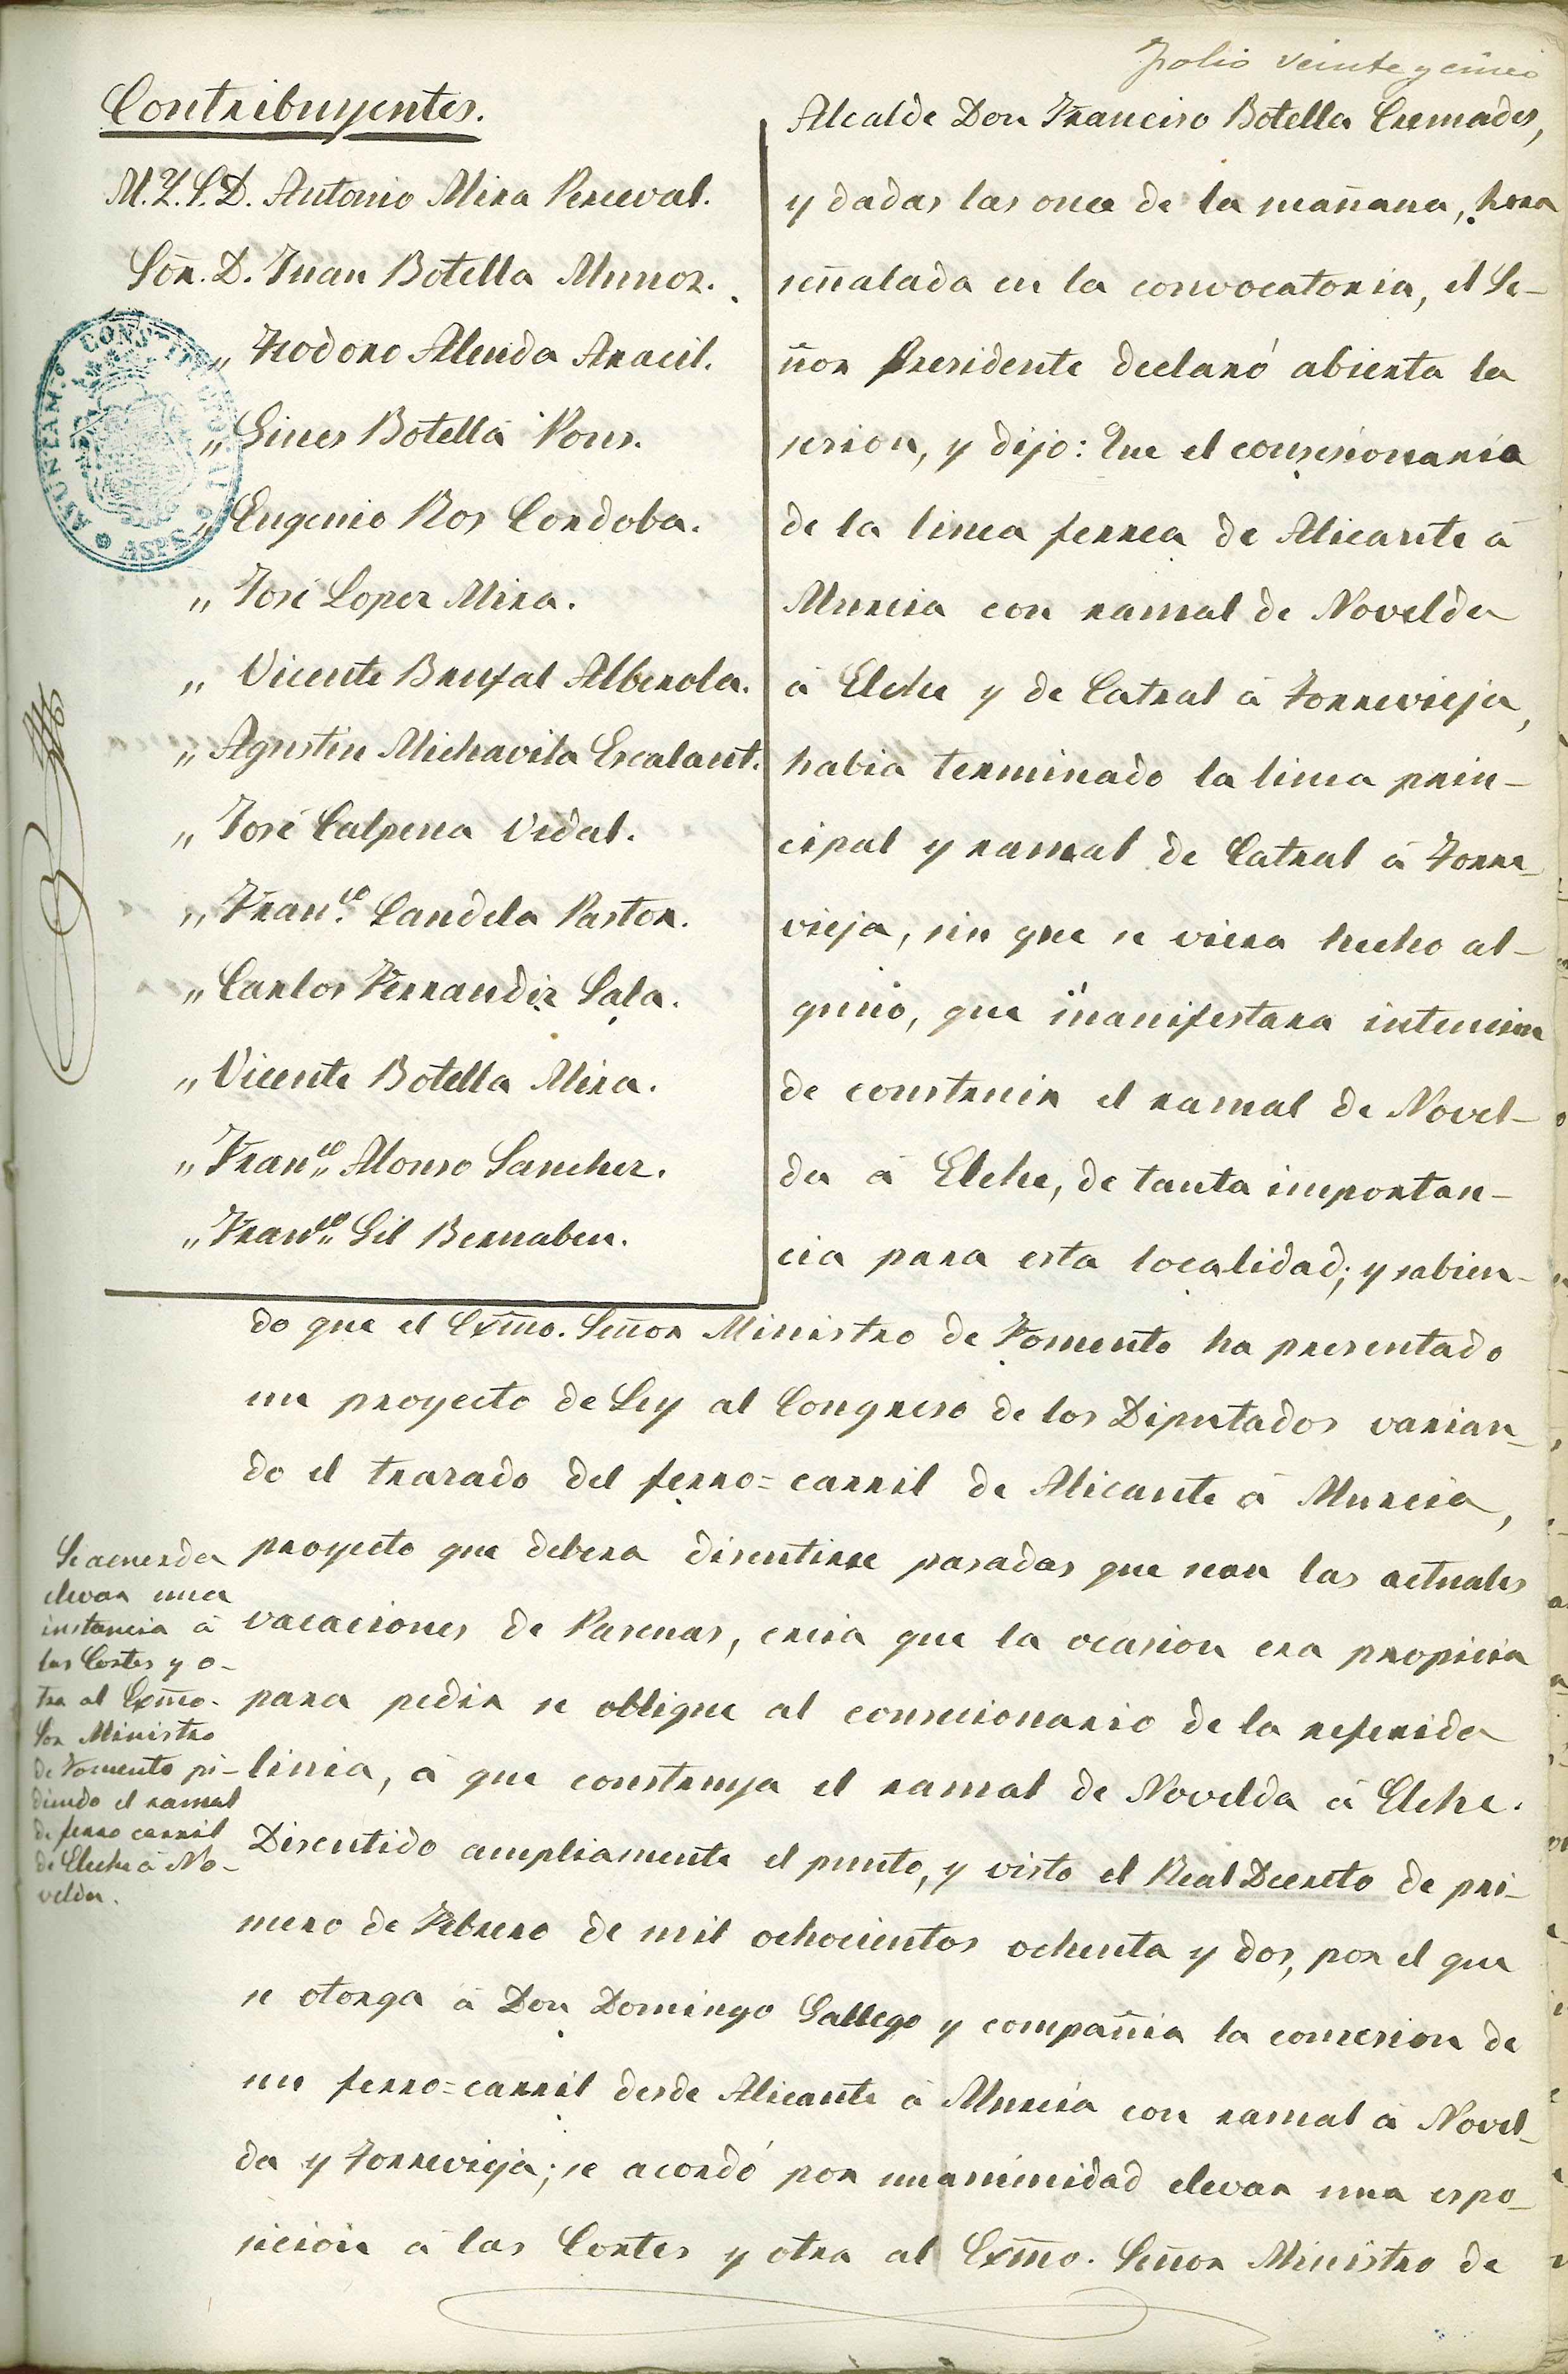 Folio veinte y cinco
Contribuyentes.
M. Y. S. D. Antonio Mira Perceval.
Sõr. D. Juan Botella Munoz.
„ Teodoro Alenda Aracil.
„ Gines Botella Pons.
„ Eugenio Ros Cordoba.
„ José Lopez Mira.
„ Vicente Brufal Alberola.
„ Agustin Michavila Escalant.
„ José Calpena Vidal.
„ Franco. Candela Pastor.
„ Carlos Ferrandiz Sala.
„ Vicente Botella Mira.
„ Franco. Alonso Sanchez.
„ Franco. Gil Bernabeu.
AYUNTAM.º CONSTITUCIONAL ASPE
Alcalde Don Franciso Botella Cremades,
y dadas las once de la mañana, hora
señalada en la convocatoria, el Se-
ñor Presidente declaró abierta la
sesion, y dijo: Que el concesionario
de la linea ferrea de Alicante á
Murcia con ramal de Novelda
á Elche y de Catral á Torrevieja,
habia terminado la linea prin-
cipal y ramal de Catral á Torre-
vieja, sin que se viera hecho al-
guno, que manifestara intencion
de construir el ramal de Novel-
da á Elche, de tanta importan-
cia para esta localidad; y sabien-
do que el Exm̃o. Señor Ministro de Fomento ha presentado
un proyecto de Ley al Congreso de los Diputados varian-
do el trazado del ferro=carril de Alicante á Murcia,
proyecto que debera discutirse pasadas que sean las actuales
vacaciones de Pascuas, creia que la ocasion era propicia
para pedir se obligue al concecionario de la referida
linia, á que construya el ramal de Novelda á Elche.
Discutido ampliamente el punto, y visto el Real Decreto de pri-
mero de Febrero de mil ochocientos ochenta y dos, por el que
se otorga á Don Domingo Gallego y compañia la concesion de
un ferro=carril desde Alicante á Murcia con ramal á Novel-
da y Torrevieja; se acordó por unanimidad elevar una espo-
sicion á las Cortes y otra al Exm̃o. Señor Ministro de
Se acuerda
elevar una
instancia á
las Cortes y o-
tra al Exm̃o.
Sor Ministro
de Fomento pi-
diendo el ramal
de ferro carril
de Elche á No-
velda.